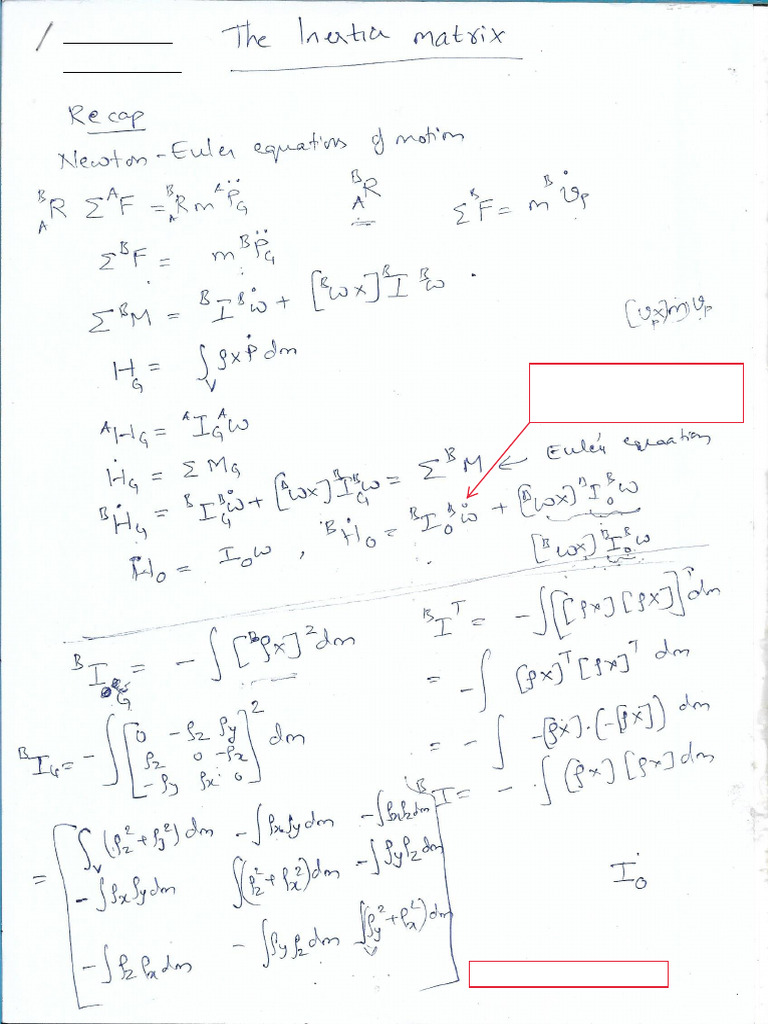 1
The Inertia matrix
Recap
Newton-Euler equations of motion
^B_A R Σ^A F = ^B_A R m ^A p̈_G
^B_A R
Σ^B F = m ^B v̇_P
Σ^B F = m ^B p̈_G
Σ^B M = ^B I ^B ω̇ + [^B ω×] ^B I ^B ω .
[v_P ×] m v_P
H_G = ∫_V ρ × ṗ dm
^A H_G = ^A I_G ^A ω
Ḣ_G = Σ M_G
^B Ḣ_G = ^B I_G ^B ω̇ + [^B ω×] ^B I_G ^B ω = Σ^B M ← Euler's equation
H_O = I_O ω , ^B Ḣ_O = ^B I_O ^B ω̇ + [^B ω×] ^B I_O ^B ω
[^B ω×] ^B I_O ^B ω
^B I_G = - ∫ [^B ρ×]^2 dm
^B I^T = - ∫ [[ρ×] [ρ×]]^T dm
= - ∫ [ρ×]^T [ρ×]^T dm
^B I_G = - ∫ [0 -ρ_z ρ_y
ρ_z 0 -ρ_x
-ρ_y ρ_x 0]^2 dm
= - ∫ -[ρ×] . (-[ρ×]) dm
^B I = - ∫ [ρ×] [ρ×] dm
= [ ∫_V (ρ_z^2 + ρ_y^2) dm - ∫ ρ_x ρ_y dm - ∫ ρ_x ρ_z dm
- ∫ ρ_x ρ_y dm ∫ (ρ_z^2 + ρ_x^2) dm - ∫ ρ_y ρ_z dm
- ∫ ρ_z ρ_x dm - ∫ ρ_y ρ_z dm ∫ (ρ_y^2 + ρ_x^2) dm ]
I_O